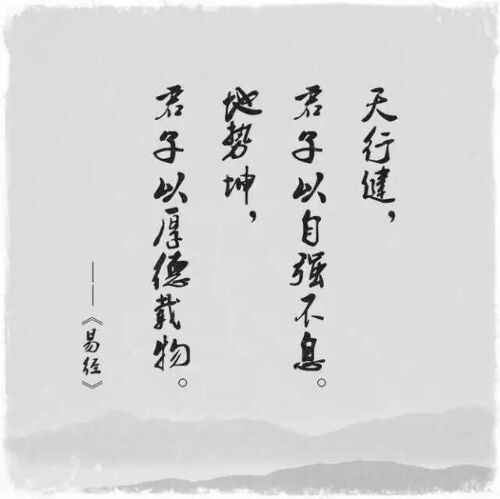 天行健，
君子以自强不息。
地势坤，
君子以厚德载物。
——《易经》